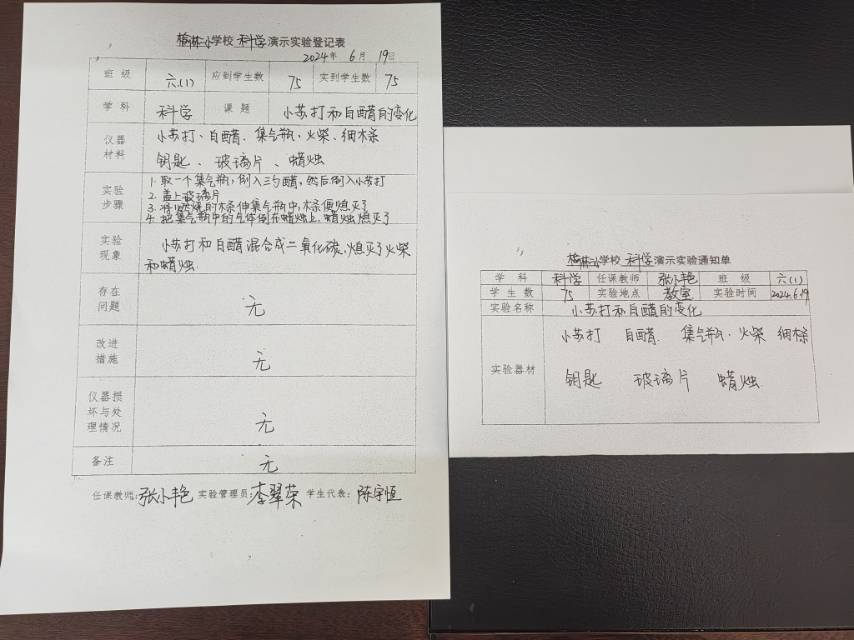 梅林小学校 科学演示实验登记表
2024年 6月 19日
班级 六.(1) 应到学生数 75 实到学生数 75
学科 科学 课题 小苏打和白醋的变化
仪器材料 小苏打、白醋、集气瓶、火柴、细木条
钥匙、玻璃片、蜡烛
实验步骤 1. 取一个集气瓶,倒入三勺醋,然后倒入小苏打
2. 盖上玻璃片
3. 将燃烧的木条伸集气瓶中,木条便熄灭了
4. 把集气瓶中的气体倒在蜡烛上,蜡烛熄灭了
实验现象 小苏打和白醋混合成二氧化碳,熄灭了火柴
和蜡烛.
存在问题 无
改进措施 无
仪器损坏与处理情况 无
备注 无
任课教师:张小艳 实验管理员:李翠荣 学生代表:陈宇恒
梅林小学校 科学演示实验通知单
学科 科学 任课教师 张小艳 班级 六(1)
学生数 75 实验地点 教室 实验时间 2024.6.19
实验名称 小苏打和白醋的变化
实验器材 小苏打 白醋. 集气瓶、火柴 细木条
钥匙 玻璃片 蜡烛